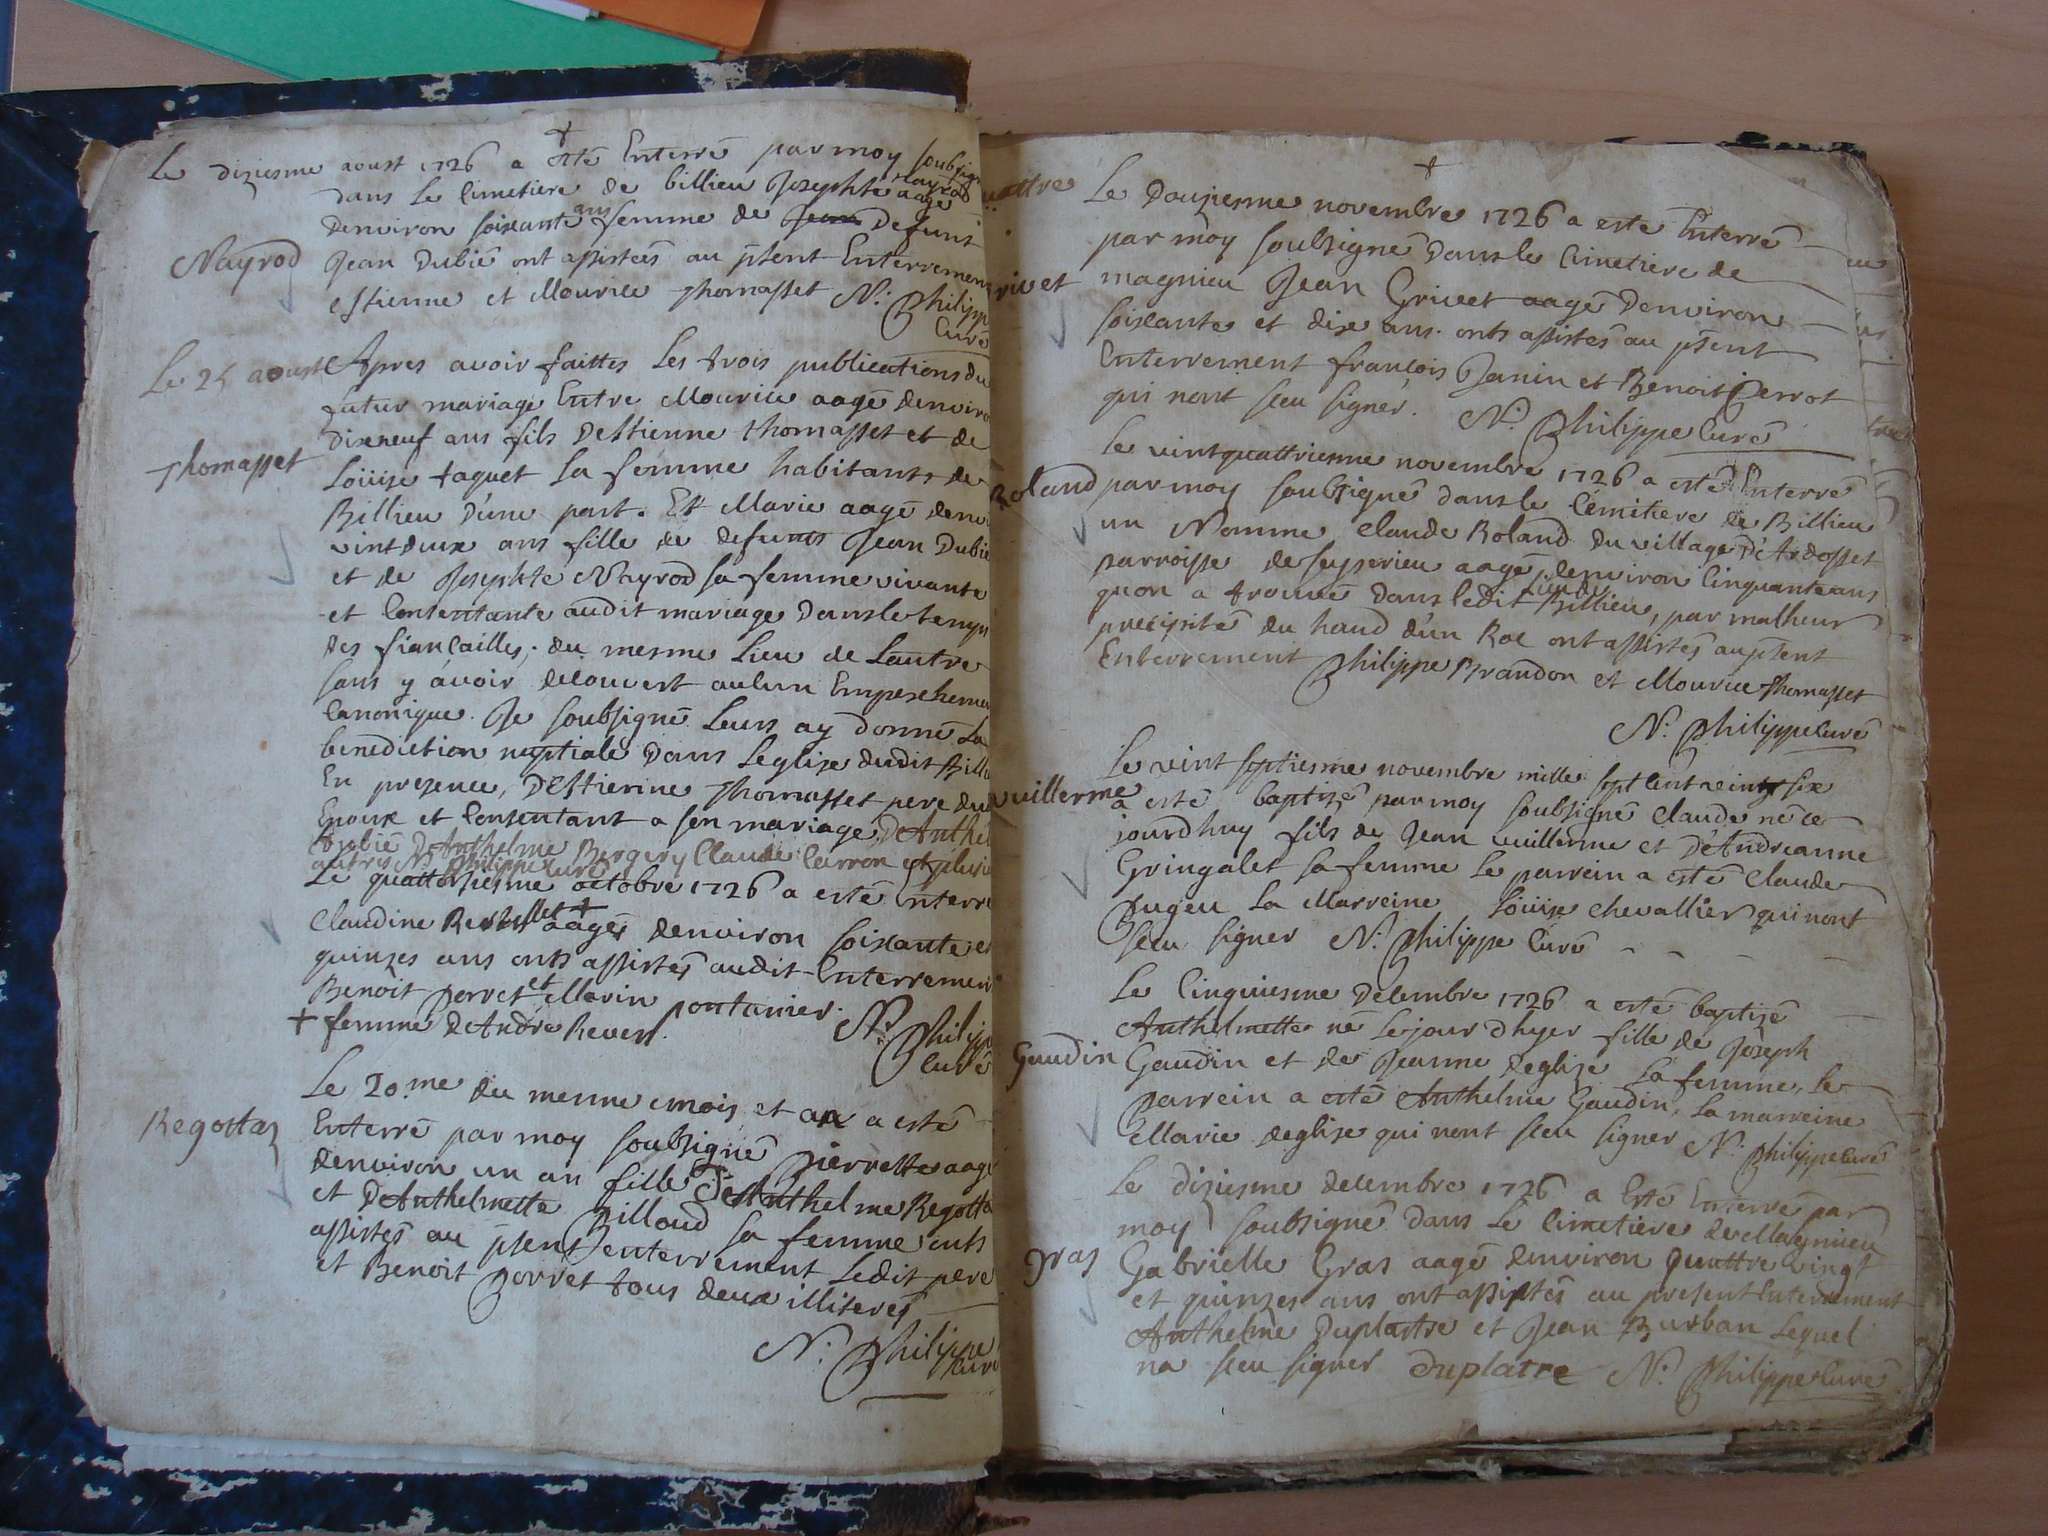 Le dixiesme aoust 1726 a esté Enterré par moy soubsign
dans Le Cimetiere de billieu Josephte Nayrod aagé
denviron soixante ans femme de Jean Defunt
Nayrod
Jean Dubié ont assistées au psent Enterrement
estienne et Mourice Thomasset N. Philipp
Curé
Le 25 aoust Apres avoir faittes Les trois publications du
futur mariage Entre Mourice aagé denviro
dixneuf ans fils Destienne thomasset et de
Thomasset
Loüise taquet sa femme habitants de
Billieu D'une part. Et Marie aagé denvi
vintdeux ans fille de defunts Jean Dubié
et de Josephte Nayrod sa femme vivante
et Consentante audit mariage Dansle temps
des fiançailles; du mesme Lieu de Lautre
sans y avoir decouvert aucun Empeschemen
Canonique. Je soubsigné Leurs ay donné La
benediction nuptiale Dans Leglise dudit Billi
En presence, D'Estienne Thomasset pere du
Epoux et Consentant a son mariage, D'Anthel
Dubié D'Anthelme Bergery Claude Carron et plusie
autres N. Philippe Curé
Le quattorsiesme octobre 1726 a esté Enterré
Claudine + aagés denviron soixante et
quinzes ans onts assistés audit Enterrement
Benoit perret et Marin pontanier.
+ femme D'André Revert. N. Philipp
Curé
Le 20.me du mesme mois et an a esté
Regottaz
Enterré par moy soubsigné Pierrette aagé
denviron un an fille D'Anthelme Regotta
et D'Anthelmette Billoud sa femme onts
assistés au psent enterrement Ledit pere
et Benoit perret tous deux illiterés
N. Philippe
Curé
Le Douziesme novembre 1726 a esté Enterré
par moy soubsigné Dansle Cimetiere de
rivet
magnieu Jean Grivet aagé Denviron
soixante et dix ans. onts assistés au psent
Enterrement françois Janin et Benoit perrot
qui nont sceu signer. N. Philippe Curé
Le vintquattriesme novembre 1726 a esté Enterré
Roland
par moy soubsigné dansle Cémitiere de Billieu
un Nommé Claude Roland du village D'Ardosset
parroisse de seyserieu aagé denviron Cinquante ans
quon a trouvé Dans ledit Lieu de Billieu, par malheur
precipité du haud d'un Roc ont assistés au psent
Enterrement Philippe Brandon et Mourice Thomasset
N. Philippe Curé
Le vint septiesme novembre mille sept Cent veint six
vuillerme
a esté baptisé par moy soubsigné Claude né ce
jourdhuy fils de Jean vuillerme et D'Andréanne
Gringalet sa femme Le parrein a esté Claude
pugeu La Marreine Loüise Chevallier qui nont
sceu signer N. Philippe Curé
Le Cinquiesme Decembre 1726 a esté baptizé
Anthelmette né Lejour dhyer fille de Joseph
Gaudin
Gaudin et de Jeanne deglise sa femme, Le
parrein a esté Anthelme Gaudin, La marreine
Marie deglise qui nont sceu signer N. Philippe Curé
Le dixiesme decembre 1726 a Esté Enterré par
moy soubsigné dans Le Cimetiere de Magnieu
gras
Gabrielle Gras aagé denviron quattre vingt
et quinzes ans ont assistés au present Enterrement
Anthelme Duplastre et Jean Burban Lequel
na sceu signer duplatre N. Philippe Curé